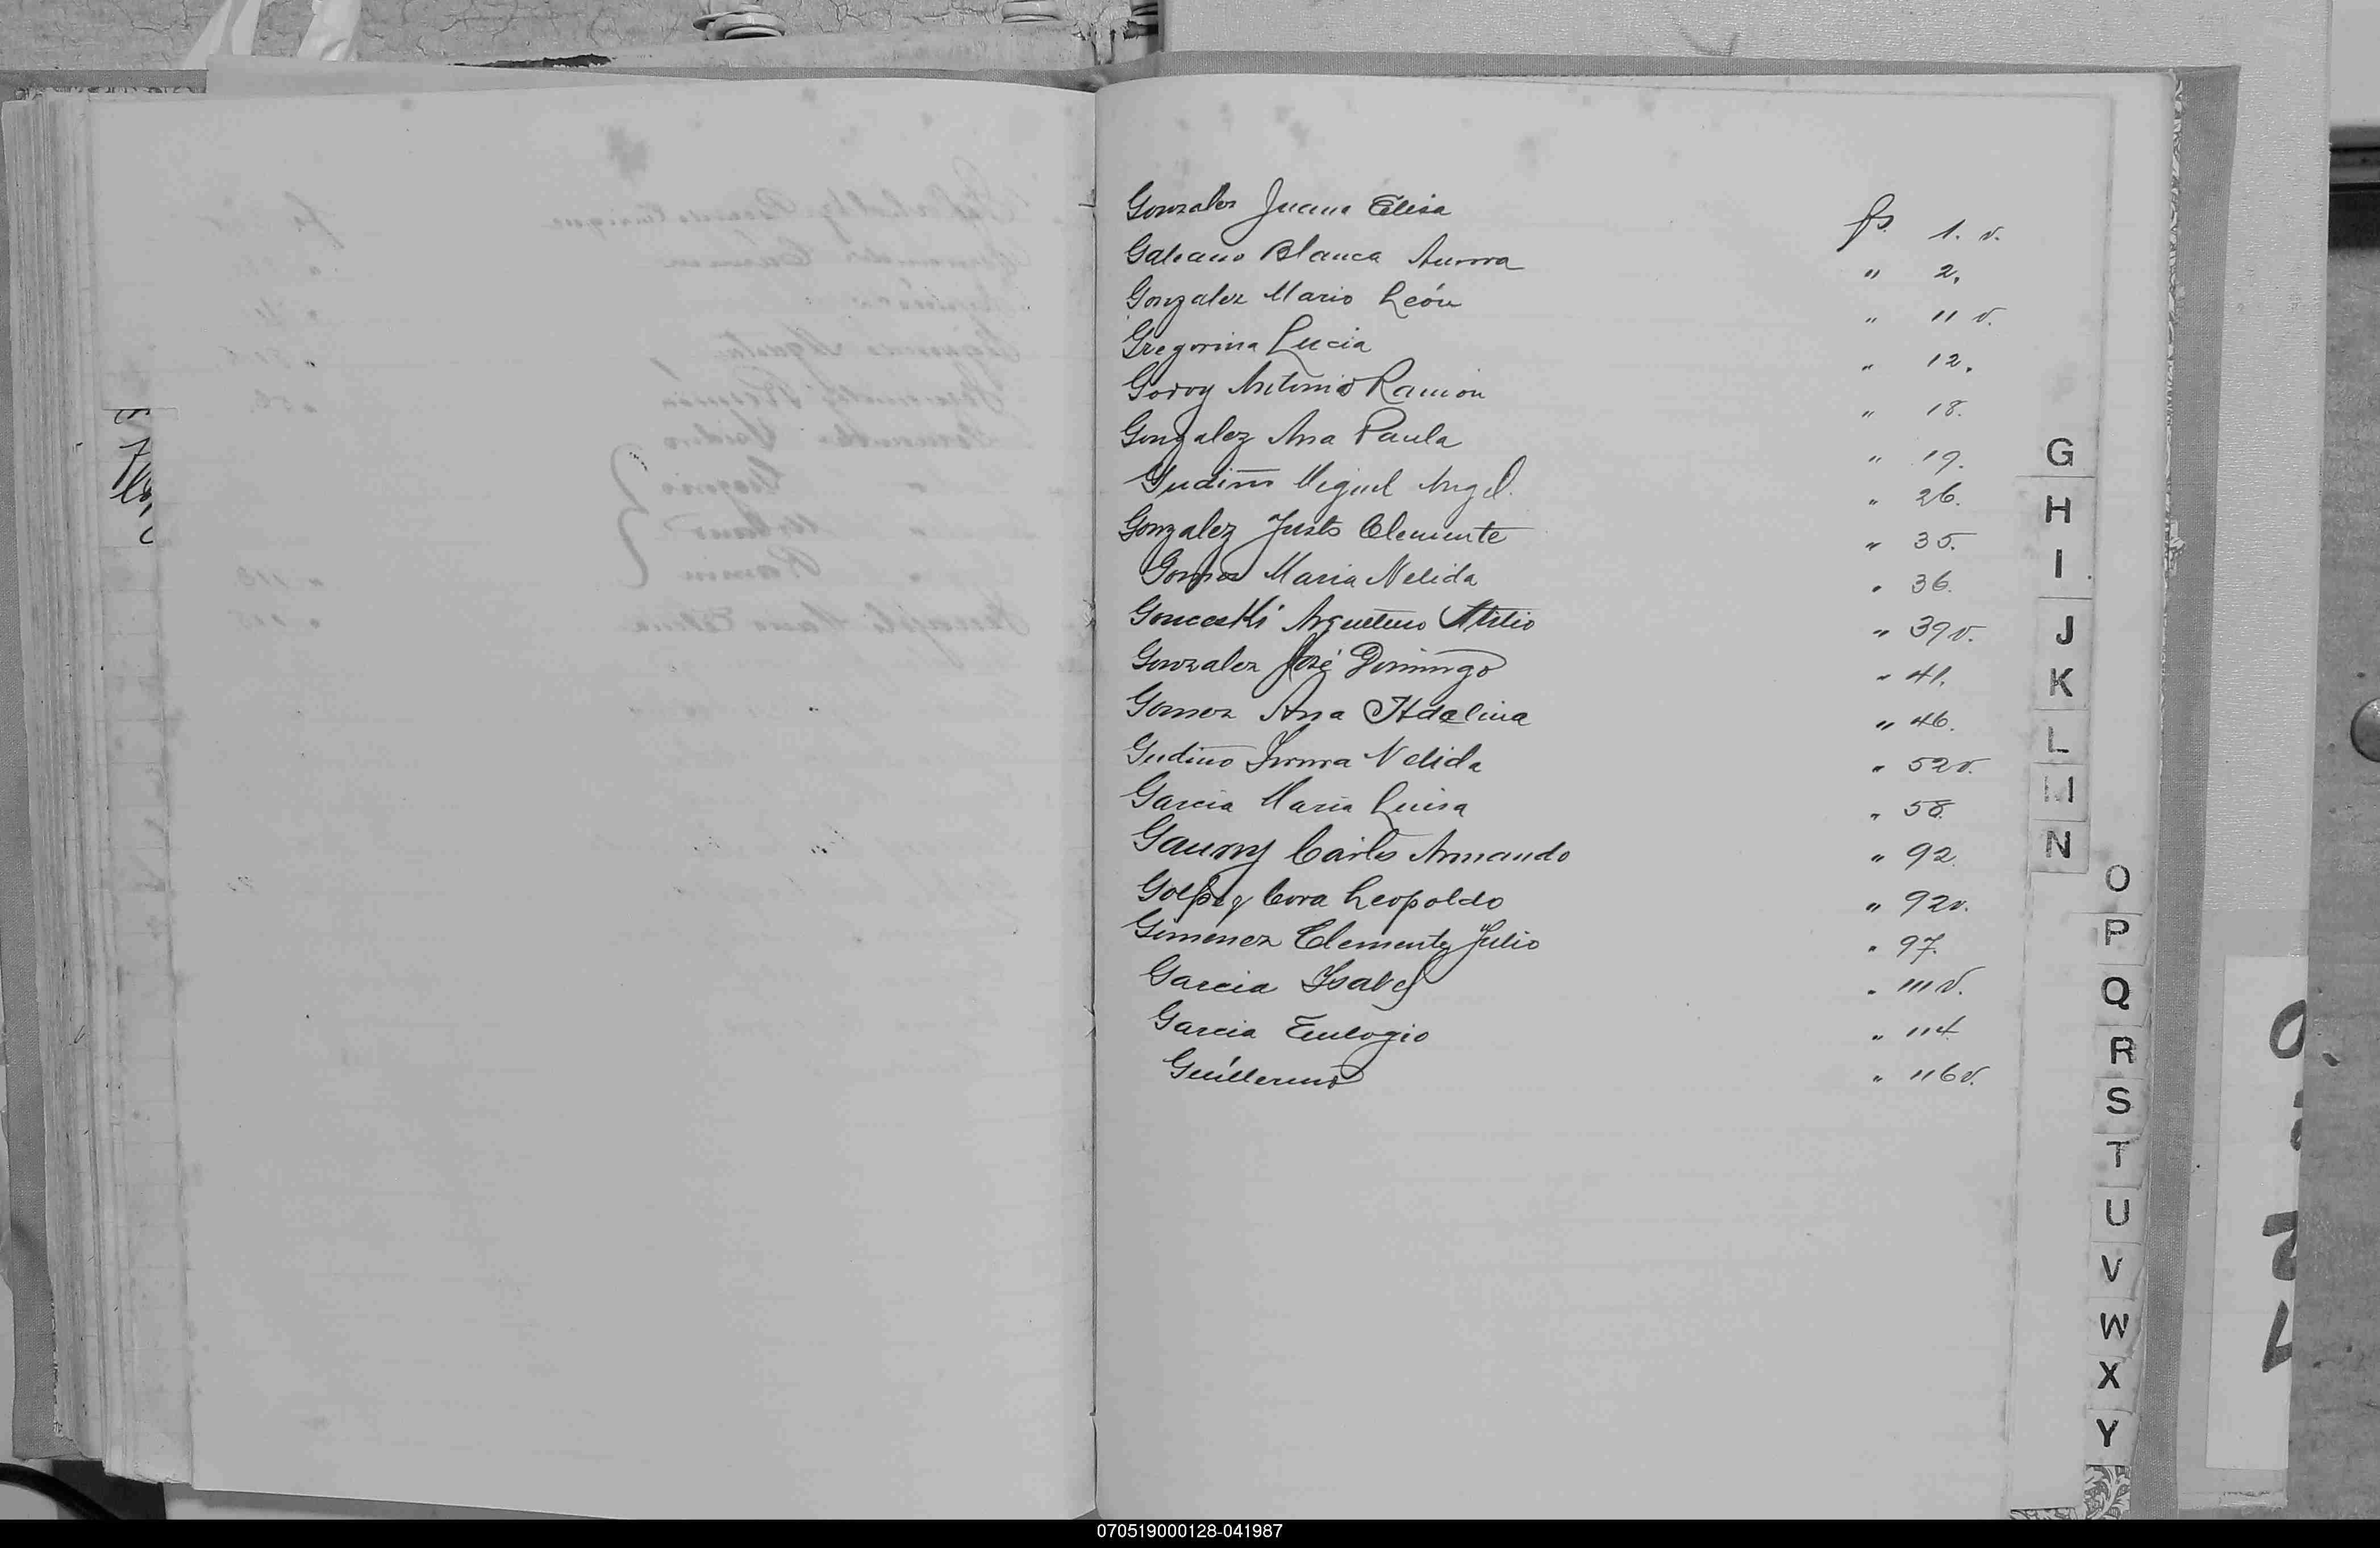 Gonzales Juana Elisa fs. 1. v.
Galeano Blanca Aurora " 2.
Gonzalez Mario León " 11 v.
Gregorina Lucia " 12.
Godoy Antonio Ramón " 18.
Gonzalez Ana Paula " 19.
Gudiño Miguel Angel. " 26.
Gonzalez Justo Clemente " 35.
Gomez Maria Nelida " 36.
Atilio " 39v.
Gonzalez José Domingo " 41.
Gomez Ana " 46.
Gudiño Irma Nelida " 52v.
Garcia Maria Luisa " 58.
Carlos Armando " 92.
Leopoldo " 92v.
Gimenez Clemente Julio " 97.
Garcia Isabel " 111v.
Garcia Eulogio " 114
Guillermo " 116v.
G
H
I
J
K
L
M
N
O
P
Q
R
S
T
U
V
W
X
Y
070519000128-041987